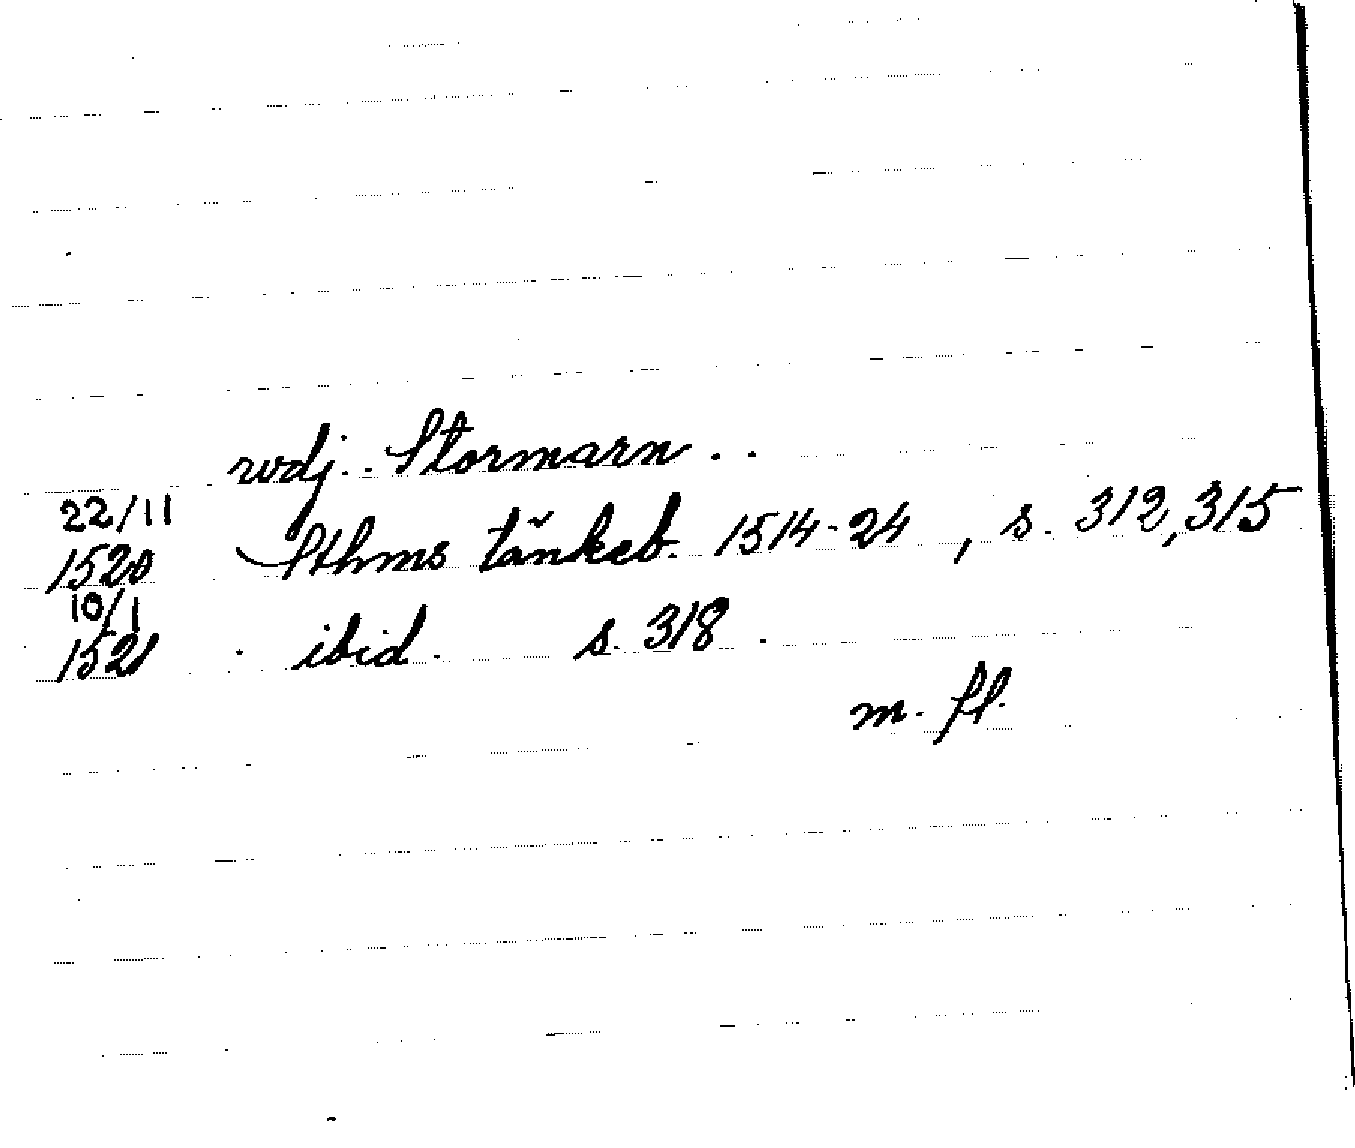 wdj. Stormarn..
22/11
1520 Sthms tänkeb. 1514-24, s. 312, 315
10/1
1521 ibid. s. 318.
m. fl.